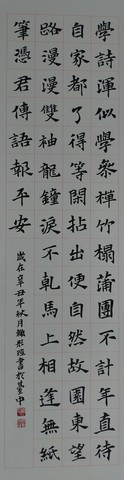 學詩渾似學參禪竹榻蒲團不計年直待
自家都了得等閑拈出便自然故園東望
路漫漫雙袖龍鐘淚不乾馬上相逢無紙
筆憑君傳語報平安
歲在辛丑年秋月書於臺中